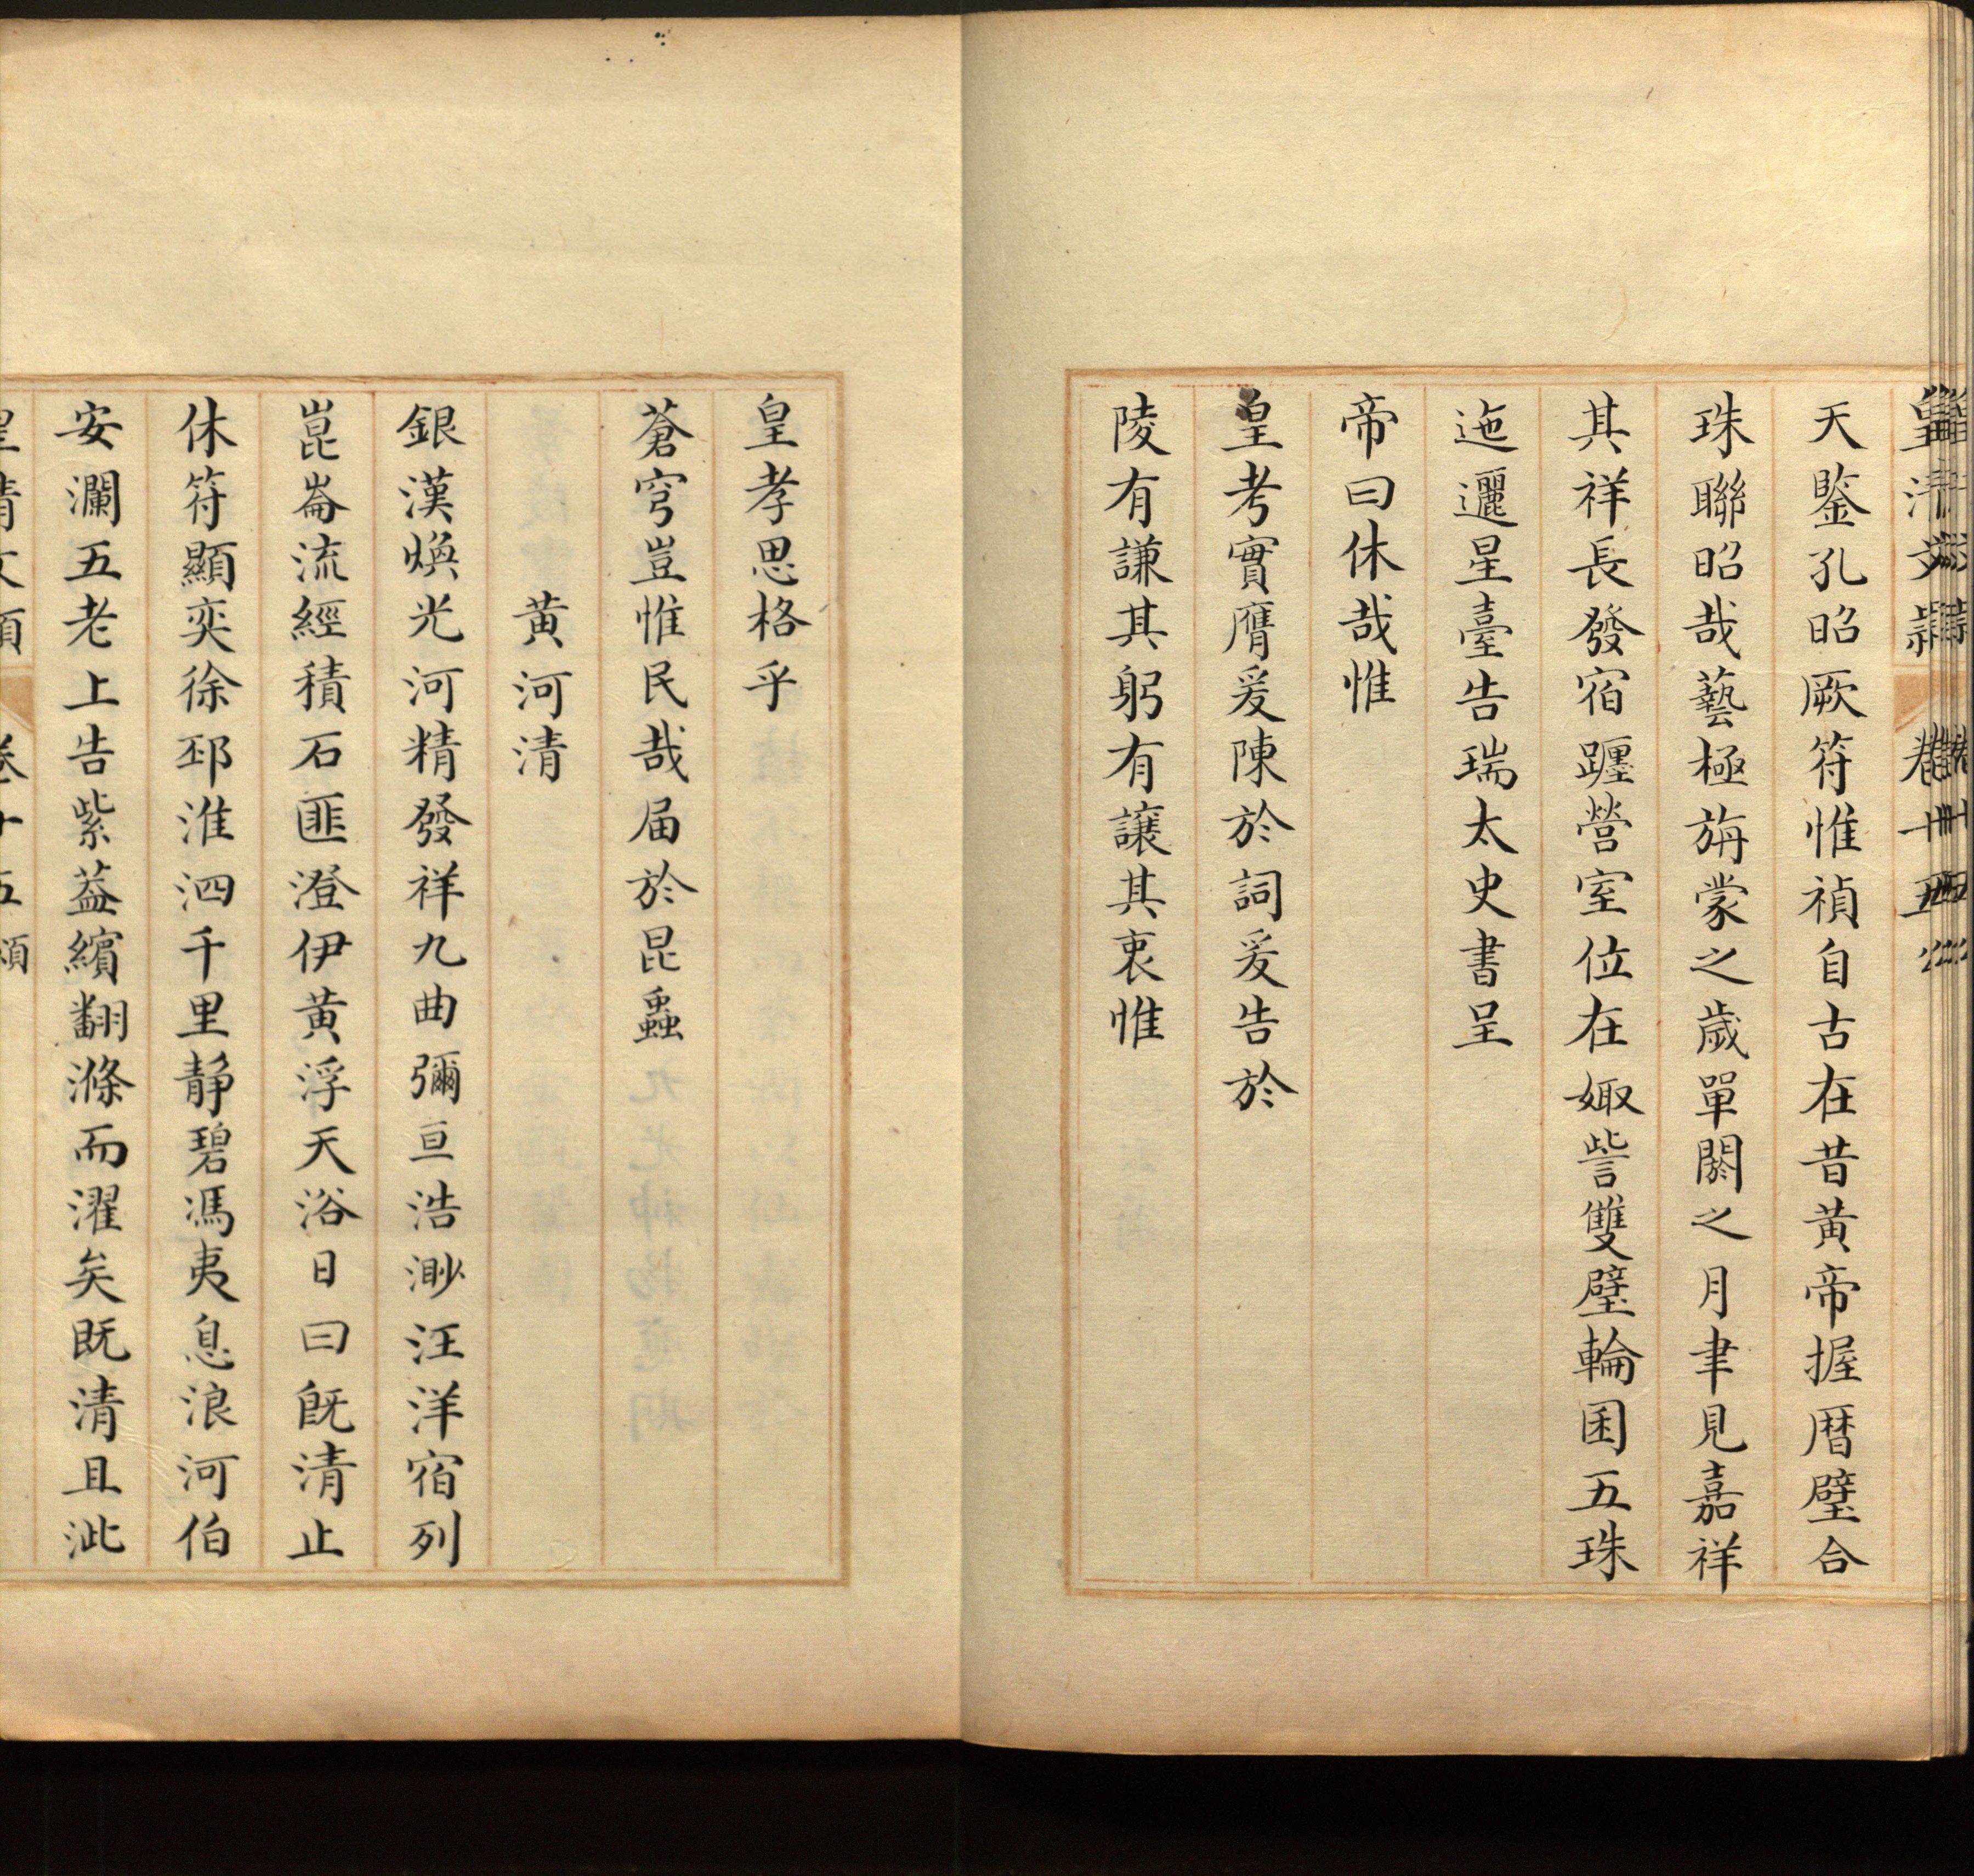 皇清文穎 卷十五
天鑒孔昭厥符惟禎自古在昔黄帝握曆璧合
珠聯昭哉藝極旃蒙之歲單閼之月聿見嘉祥
其祥長發宿躔營室位在娵訾雙璧輪囷五珠
迤邐星臺告瑞太史書呈
帝曰休哉惟
皇考實膺爰陳於詞爰告於
陵有謙其躬有讓其衷惟
皇孝思格乎
蒼穹豈惟民哉届於昆蟲
黄河清
銀漢煥光河精發祥九曲彌亘浩渺汪洋宿列
崑崙流經積石匪澄伊黄浮天浴日曰旣清止
休符顯奕徐邳淮泗千里静碧馮夷息浪河伯
安瀾五老上告紫葢繽翻滌而濯矣旣清且泚
皇清文穎 卷十五 頌